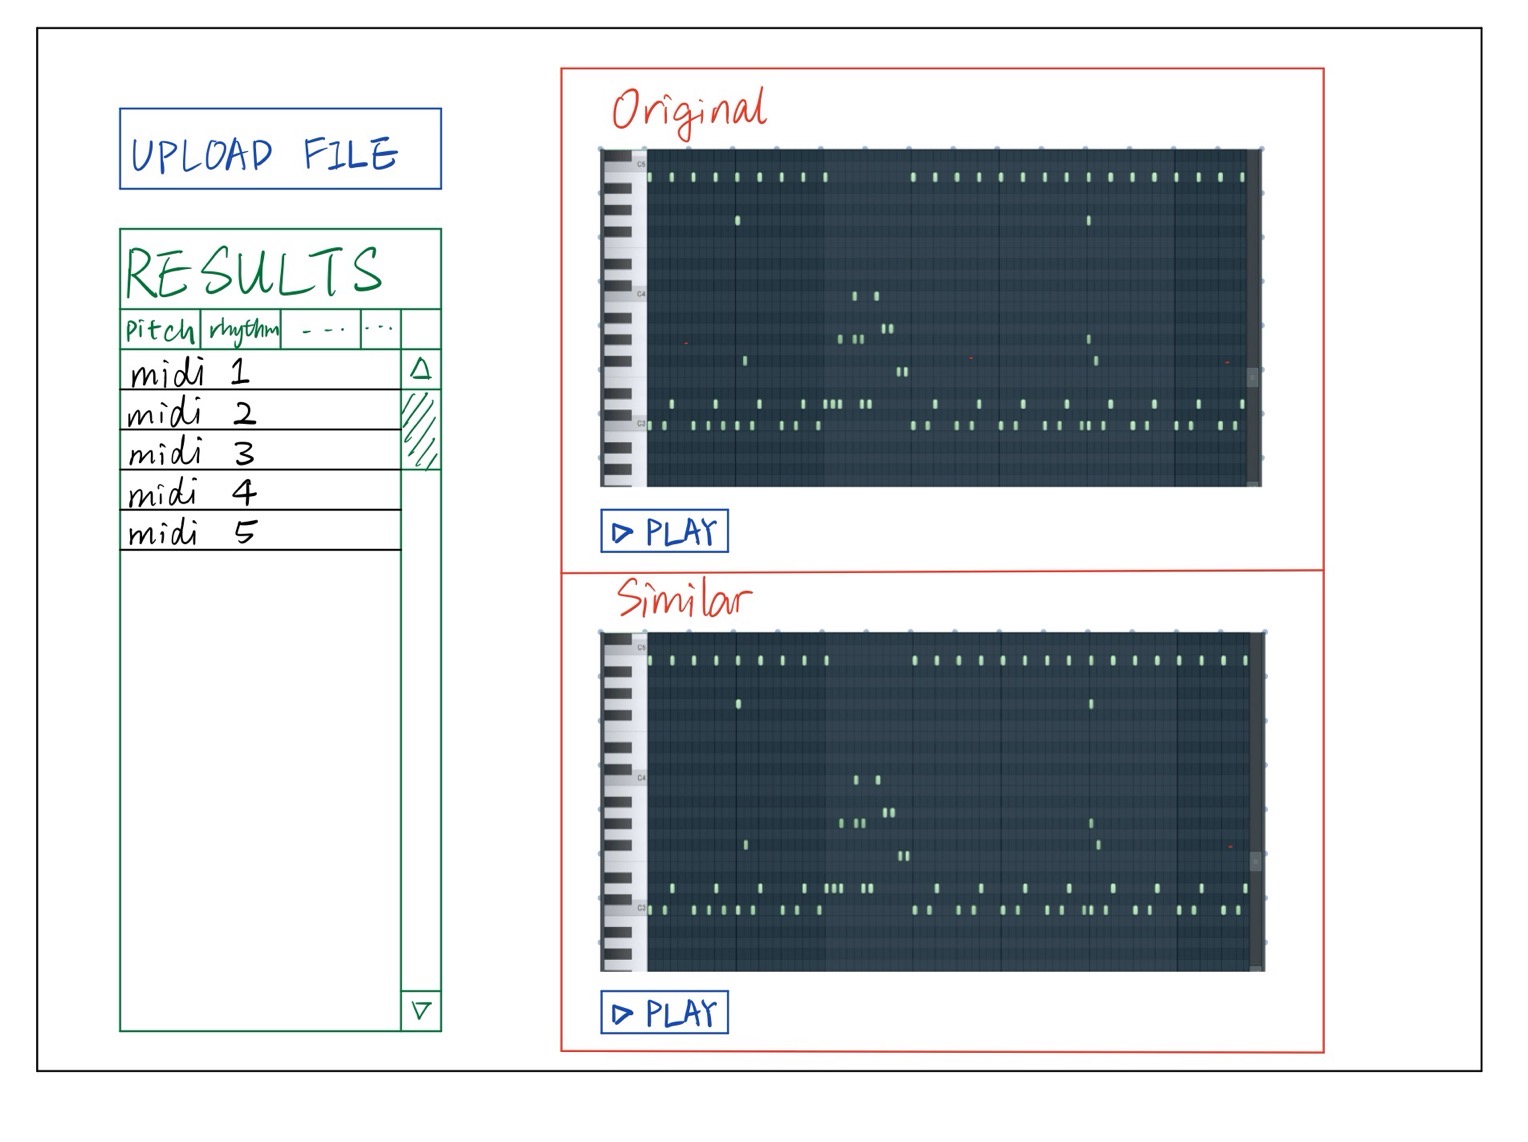 UPLOAD FILE
RESULTS
Pitch rhythm --·· ···
midi 1
midi 2
midi 3
midi 4
midi 5
Original
C5
C4
C3
PLAY
Similar
C5
C4
C3
PLAY